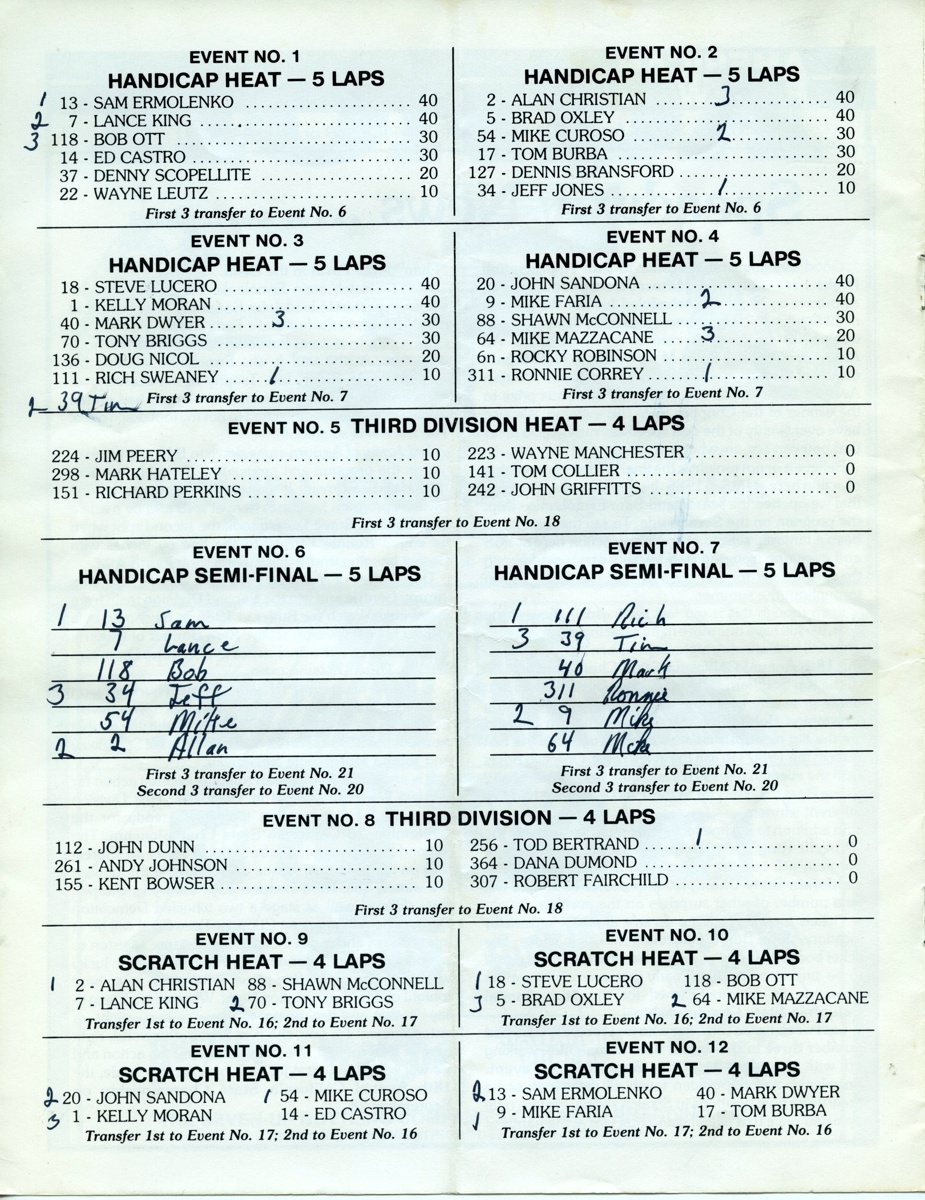 EVENT NO. 1
HANDICAP HEAT — 5 LAPS
1 13 - SAM ERMOLENKO .......................... 40
2 7 - LANCE KING .......................... 40
3 118 - BOB OTT .......................... 30
14 - ED CASTRO .......................... 30
37 - DENNY SCOPELLITE .......................... 20
22 - WAYNE LEUTZ .......................... 10
First 3 transfer to Event No. 6
EVENT NO. 2
HANDICAP HEAT — 5 LAPS
2 - ALAN CHRISTIAN ........3.................. 40
5 - BRAD OXLEY .......................... 40
54 - MIKE CUROSO ..........2................ 30
17 - TOM BURBA .......................... 30
127 - DENNIS BRANSFORD .......................... 20
34 - JEFF JONES ............1.............. 10
First 3 transfer to Event No. 6
EVENT NO. 3
HANDICAP HEAT — 5 LAPS
18 - STEVE LUCERO .......................... 40
1 - KELLY MORAN .......................... 40
40 - MARK DWYER ........3.................. 30
70 - TONY BRIGGS .......................... 30
136 - DOUG NICOL .......................... 20
111 - RICH SWEANEY ......1.................... 10
2 39 Tim First 3 transfer to Event No. 7
EVENT NO. 4
HANDICAP HEAT — 5 LAPS
20 - JOHN SANDONA .......................... 40
9 - MIKE FARIA ............2.............. 40
88 - SHAWN McCONNELL .......................... 30
64 - MIKE MAZZACANE ...3....................... 20
6n - ROCKY ROBINSON .......................... 10
311 - RONNIE CORREY .......1................... 10
First 3 transfer to Event No. 7
EVENT NO. 5 THIRD DIVISION HEAT — 4 LAPS
224 - JIM PEERY .......................... 10 223 - WAYNE MANCHESTER .......................... 0
298 - MARK HATELEY .......................... 10 141 - TOM COLLIER .......................... 0
151 - RICHARD PERKINS .......................... 10 242 - JOHN GRIFFITTS .......................... 0
First 3 transfer to Event No. 18
EVENT NO. 6
HANDICAP SEMI-FINAL — 5 LAPS
1 13 Sam
7 Lance
118 Bob
3 34 Jeff
54 Mike
2 2 Allan
First 3 transfer to Event No. 21
Second 3 transfer to Event No. 20
EVENT NO. 7
HANDICAP SEMI-FINAL — 5 LAPS
1 111 Rich
3 39 Tim
40 Mark
311 Ronnie
2 9 Mike
64 Mike
First 3 transfer to Event No. 21
Second 3 transfer to Event No. 20
EVENT NO. 8 THIRD DIVISION — 4 LAPS
112 - JOHN DUNN .......................... 10 256 - TOD BERTRAND ........1.................. 0
261 - ANDY JOHNSON .......................... 10 364 - DANA DUMOND .......................... 0
155 - KENT BOWSER .......................... 10 307 - ROBERT FAIRCHILD .......................... 0
First 3 transfer to Event No. 18
EVENT NO. 9
SCRATCH HEAT — 4 LAPS
1 2 - ALAN CHRISTIAN 88 - SHAWN McCONNELL
7 - LANCE KING 2 70 - TONY BRIGGS
Transfer 1st to Event No. 16; 2nd to Event No. 17
EVENT NO. 10
SCRATCH HEAT — 4 LAPS
1 18 - STEVE LUCERO 118 - BOB OTT
3 5 - BRAD OXLEY 2 64 - MIKE MAZZACANE
Transfer 1st to Event No. 16; 2nd to Event No. 17
EVENT NO. 11
SCRATCH HEAT — 4 LAPS
2 20 - JOHN SANDONA 1 54 - MIKE CUROSO
3 1 - KELLY MORAN 14 - ED CASTRO
Transfer 1st to Event No. 17; 2nd to Event No. 16
EVENT NO. 12
SCRATCH HEAT — 4 LAPS
2 13 - SAM ERMOLENKO 40 - MARK DWYER
1 9 - MIKE FARIA 17 - TOM BURBA
Transfer 1st to Event No. 17; 2nd to Event No. 16